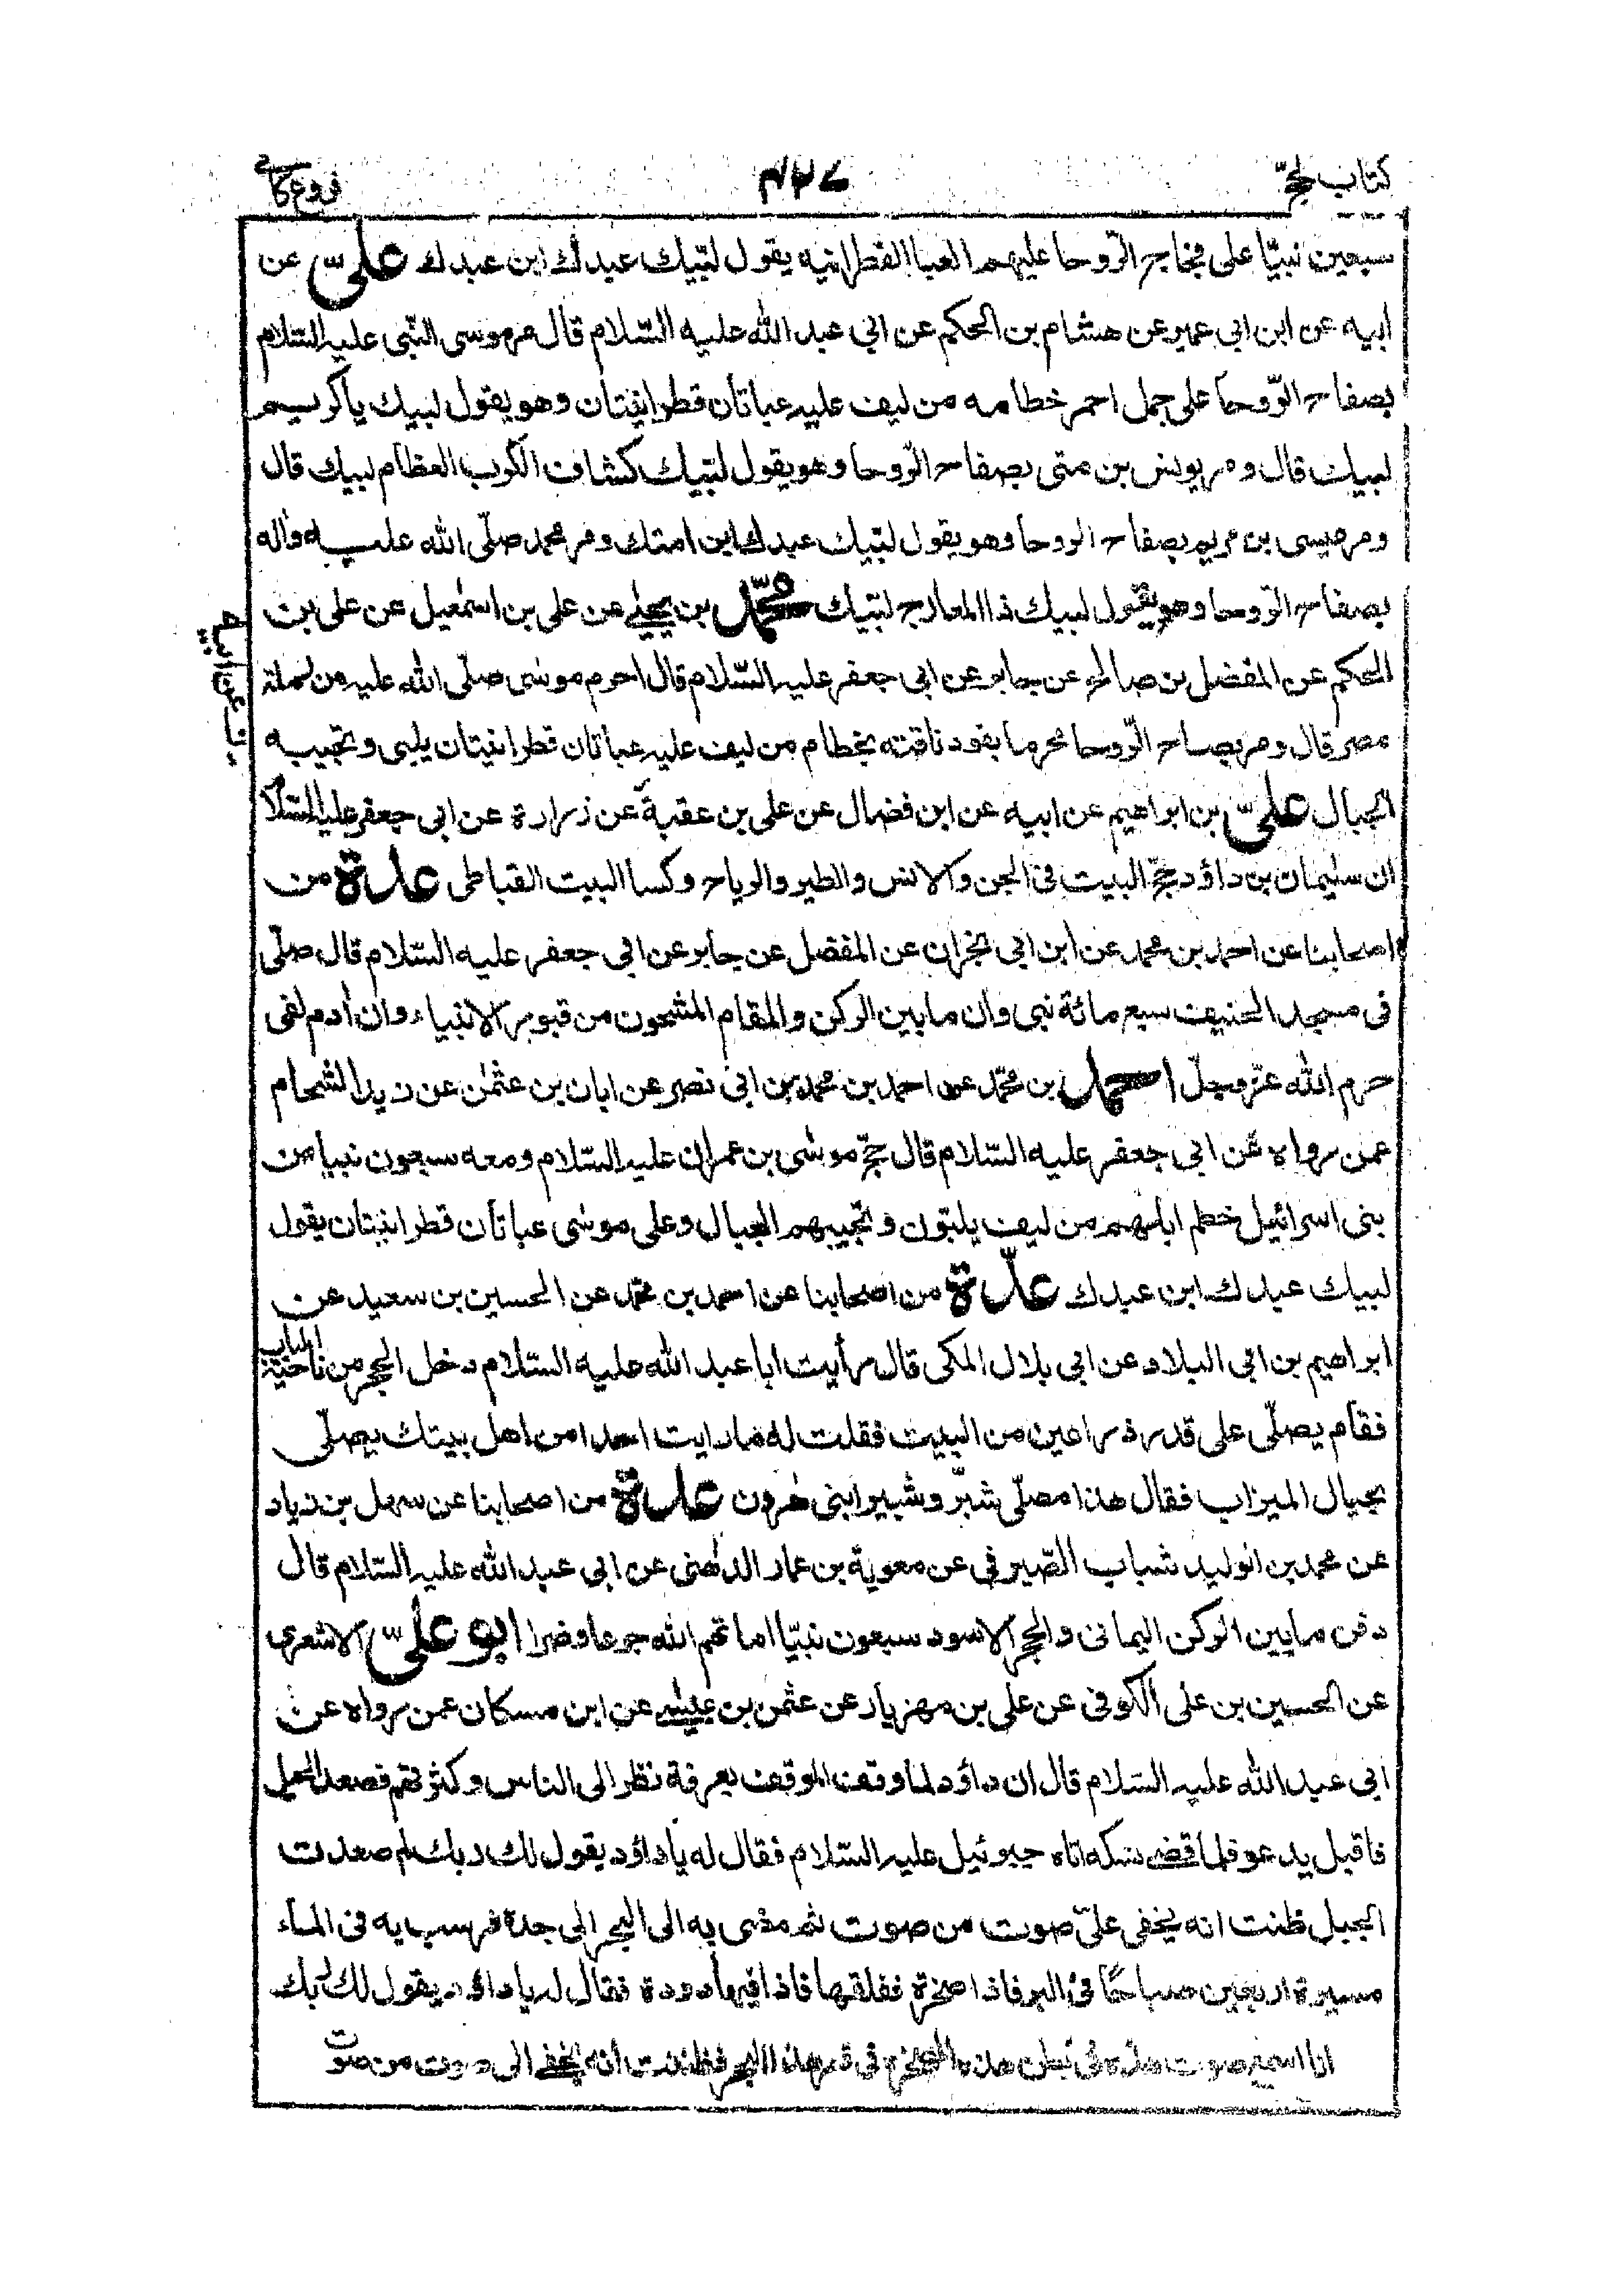 كتاب الحجّ ٤٢٧ فروع كافي
سبعين نبيّا على فجاج الرّوحا عليهم العبا القطرانيه يقول لبّيك عبدك ابن عبدك علىّ عن
ابيه عن ابن ابي عمير عن هشام بن الحكم عن ابي عبد الله عليه السّلام قال مر موسى النّبى عليه السّلام
بصفاح الرّوحا على جمل احمر خطامه من ليف عليه عباتان قطرانيتان وهو يقول لبيك يا كريم
لبيك قال ومر يونس بن متى بصفاح الرّوحا وهو يقول لبّيك كشاف الكرب العظام لبيك قال
ومر عيسى بن مريم بصفاح الروحا وهو يقول لبّيك عبدك ابن امتك ومر محمد صلّى الله عليه واله
بصفاح الرّوحا وهو يقول لبيك ذا المعارج لبّيك محمّد بن يحيىٰ عن على بن اسمٰعيل عن على بن
الحكم عن المفضل بن صالح عن جابر عن ابي جعفر عليه السّلام قال احرم موسى صلّى الله عليه من رملة
مصر قال ومر بصفاح الرّوحا محرما يقود ناقته بخطام من ليف عليه عباتان قطرانيتان يلبى وتجيبه
الجبال علىّ بن ابراهيم عن ابيه عن ابن فضال عن على بن عقبة عن زرارة عن ابي جعفر عليه السّلام
ان سليمان بن داؤد حجّ البيت فى الجن والانس والطير والرياح وكسا البيت القباطى عدة من
اصحابنا عن احمد بن محمد عن ابن ابي نجران عن المفضل عن جابر عن ابي جعفر عليه السّلام قال صلّى
فى مسجد الخيف سبع مائة نبى وان ما بين الركن والمقام لمشحون من قبور الانبياء وان أدم لفى
حرم الله عزّ وجلّ احمد بن محمّد عن احمد بن محمد بن ابي نصر عن ابان بن عثمٰن عن زيد الشحام
عمن رواه عن ابي جعفر عليه السّلام قال حجّ موسى بن عمران عليه السّلام ومعه سبعون نبيا من
بنى اسرائيل خطم ابلهم من ليف يلبّون وتجيبهم الجبال وعلى موسى عباتان قطرانيتان يقول
لبيك عبدك ابن عبدك عدّة من اصحابنا عن احمد بن محمّد عن الحسين بن سعيد عن
ابراهيم بن ابي البلاد عن ابي بلال المكى قال رأيت ابا عبد الله عليه السّلام دخل الحجر من ناحية الباب
فقام يصلّى على قدر ذراعين من البيت فقلت له ما رايت احدا من اهل بيتك يصلّى
بحيال الميزاب فقال هذا مصلّى شبّر وشبير ابنى هٰرون عدة من اصحابنا عن سهل بن زياد
عن محمد بن الوليد شباب الصّيرفى عن معوية بن عمار الدهنى عن ابي عبد الله عليه السّلام قال
دفن ما بين الركن اليمانى والحجر الاسود سبعون نبيّا اماتهم الله جوعا وضرا ابو علىّ الاشعرى
عن الحسين بن على الكوفى عن على بن مهزيار عن عثمٰن بن عيسىٰ عن ابن مسكان عمن رواه عن
ابي عبد الله عليه السّلام قال ان داؤد لما وقف الموقف بعرفة نظر الى الناس وكثرتهم فصعد الجبل
فاقبل يدعو فلما قضىٰ نسكه اتاه جبرئيل عليه السّلام فقال له يا داؤد يقول لك ربك لم صعدت
الجبل ظننت انه يخفى علىّ صوت من صوت ثم مضى به الى البحر الى جدة فرسب به فى الماء
مسيرة اربعين صباحًا فى البر فاذا صخرة ففلقها فاذا فيها دودة فقال له يا داؤد يقول لك ربك
انا اسمع صوت هذه فى بطن هذه الصخرة فى قعر هذا البحر فظننت انه يخفىٰ الى صوت من صوت
عن ابيه